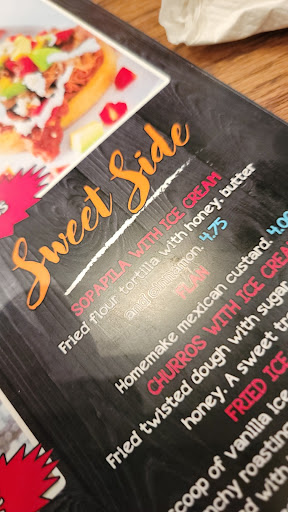 Sweet Side
SOPAPILA WITH ICE CREAM
Fried flour tortilla with honey, butter
and cinnamon. 4.75
FLAN
Homemake mexican custard. 4.00
CHURROS WITH ICE CREAM
Fried twisted dough with sugar
honey. A sweet
FRIED ICE
scoop of vanilla ice
roasting
with